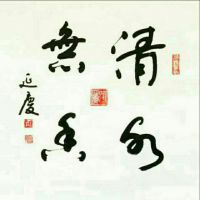 清水
無香
延慶